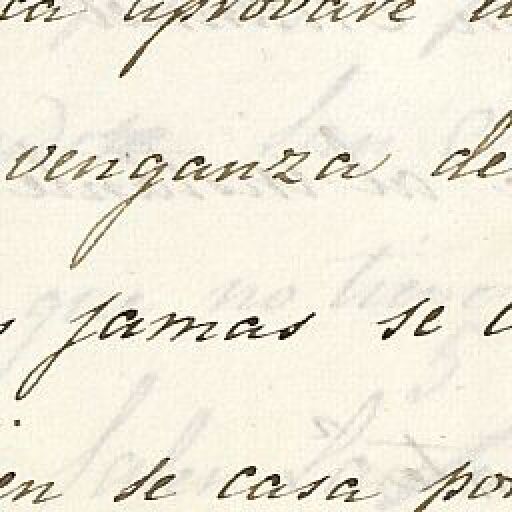 aprovare
venganza de
jamas se
en se casa por